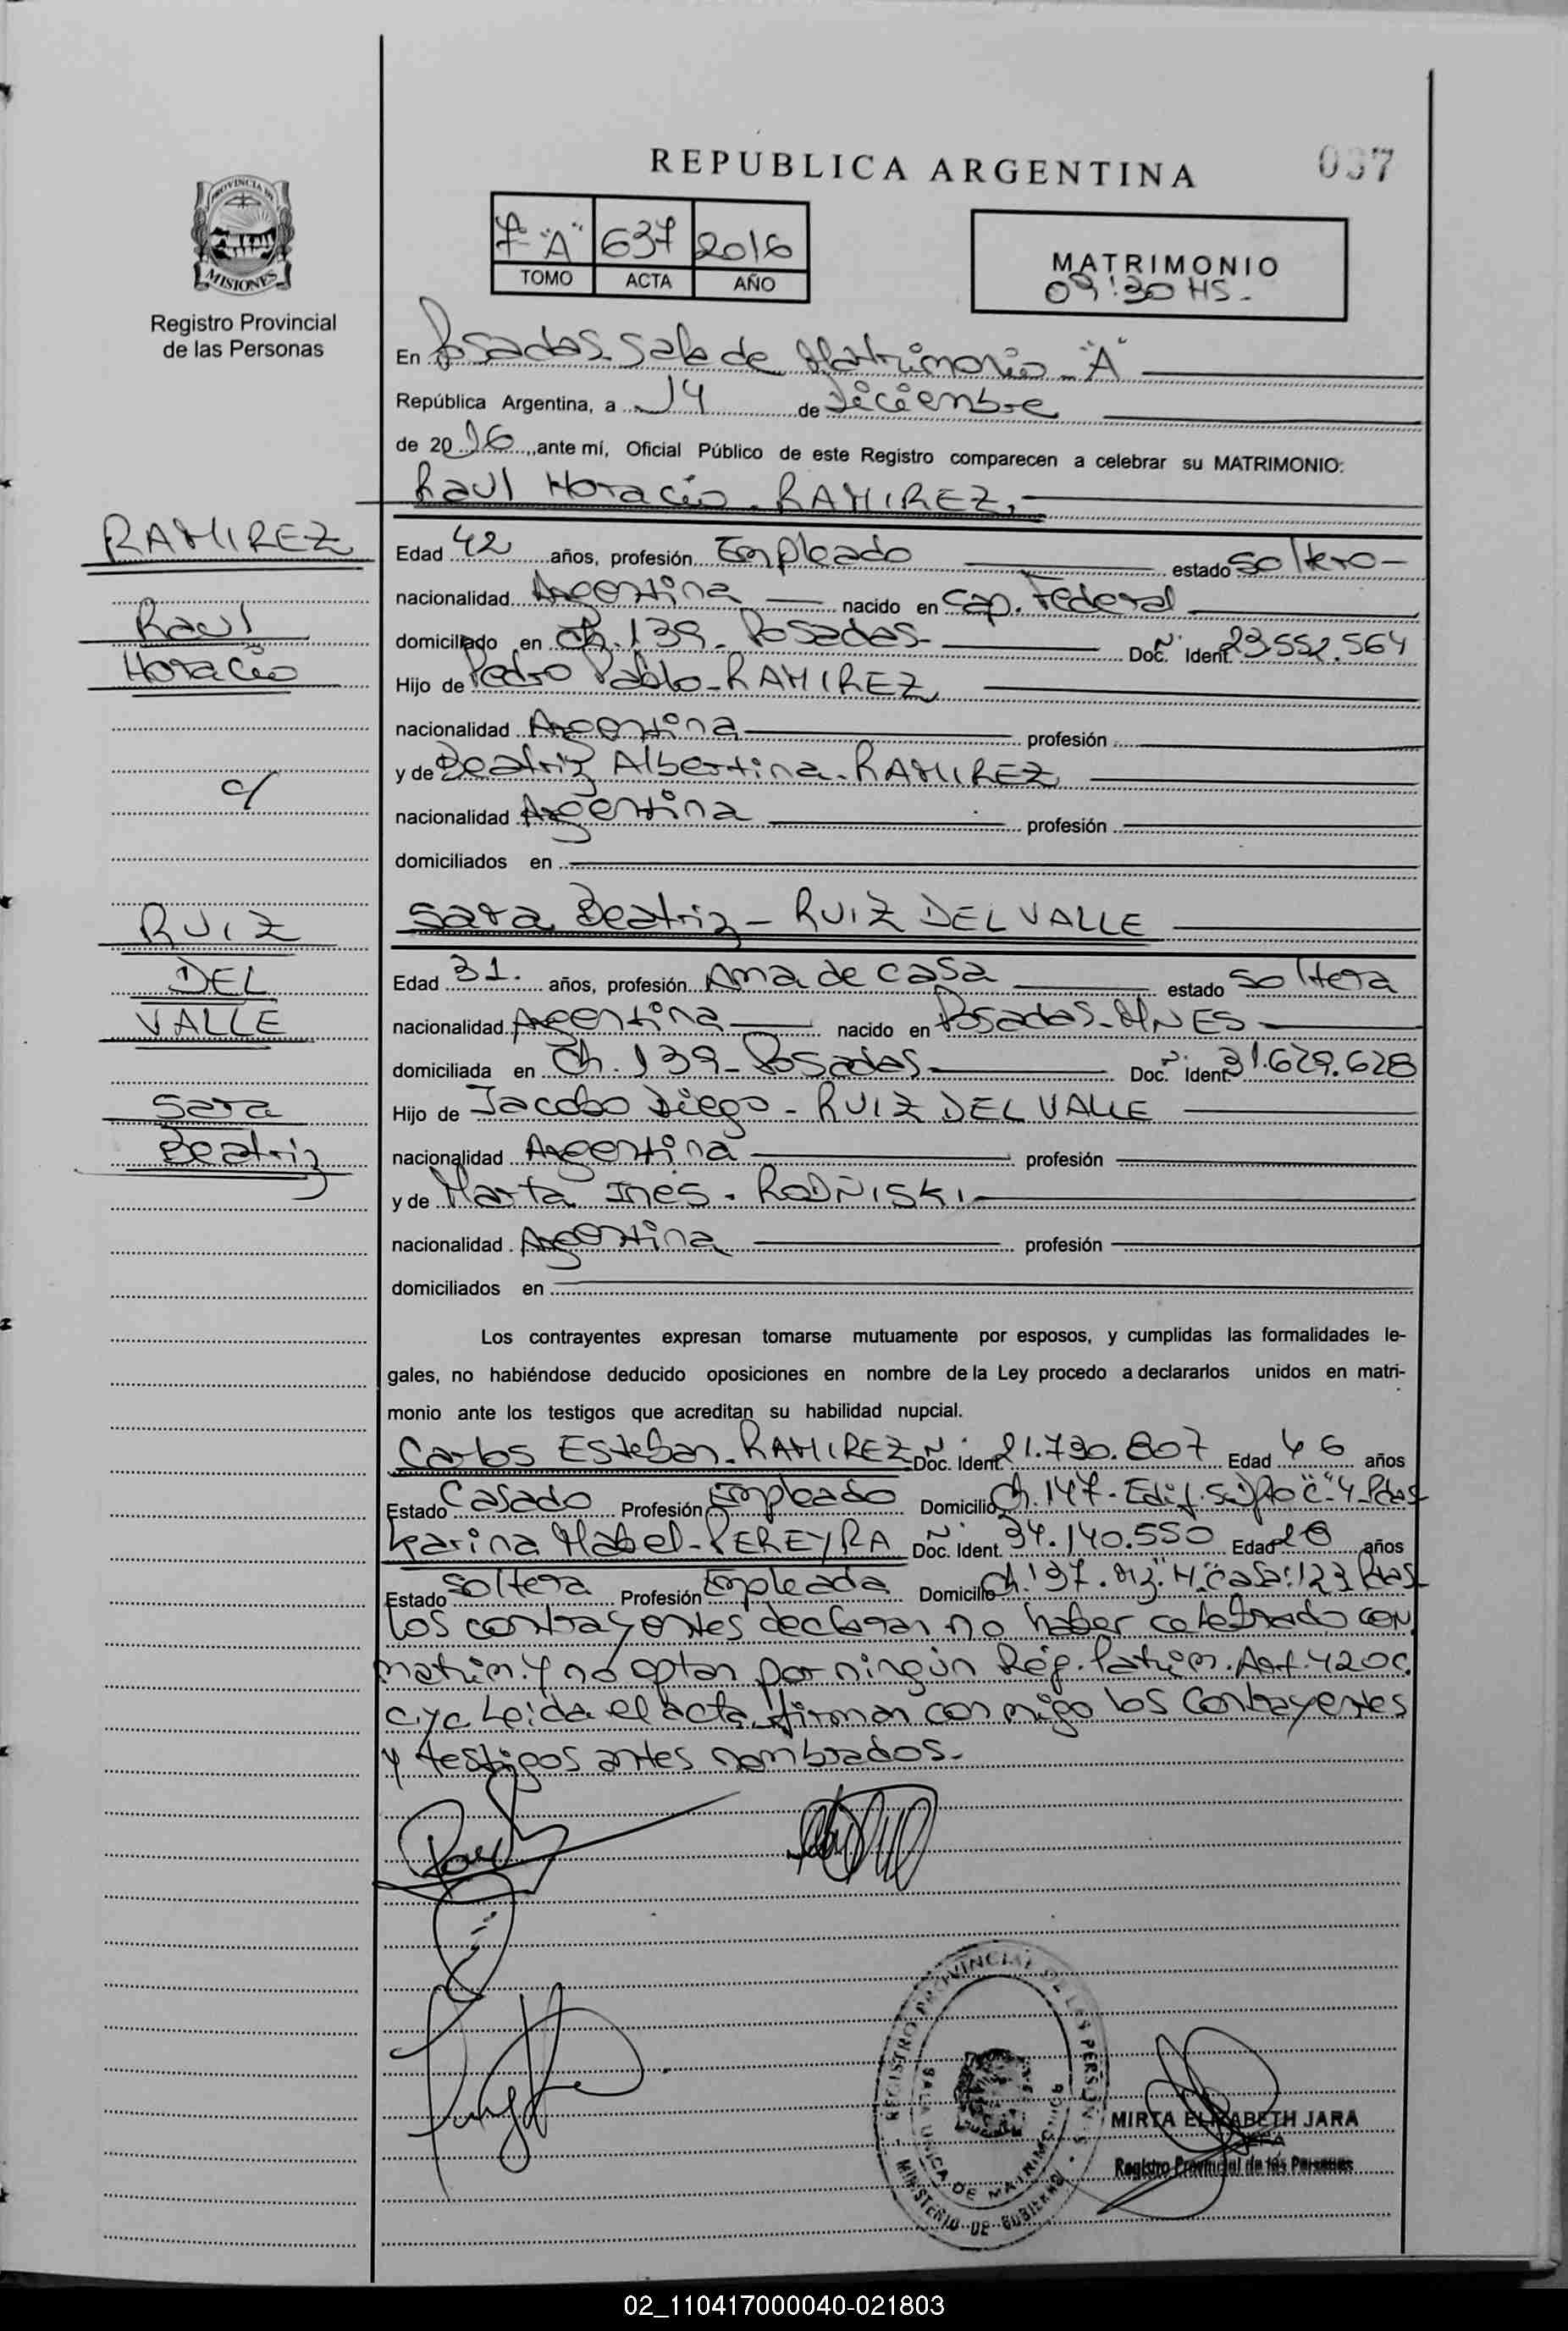 REPUBLICA ARGENTINA
037
PROVINCIA DE
MISIONES
Registro Provincial
de las Personas
7-"A" 637 2016
TOMO ACTA AÑO
MATRIMONIO
09:30 HS-
En Posadas-Sala de Matrimonio-"A"
República Argentina, a 14 de Diciembre
de 2016, ante mí, Oficial Público de este Registro comparecen a celebrar su MATRIMONIO:
Raul Horacio-RAMIREZ
RAMIREZ
Raul
Horacio
c/
RUIZ
DEL
VALLE
Sara
Beatriz
Edad 42 años, profesión Empleado estado soltero-
nacionalidad Argentina nacido en Cap. Federal
domiciliado en Ch. 139-Posadas- Doc. Ident. Nº 23.552.564
Hijo de Pedro Pablo-RAMIREZ
nacionalidad Argentina profesión
y de Beatriz Albertina-RAMIREZ
nacionalidad Argentina profesión
domiciliados en
Sara Beatriz-RUIZ DEL VALLE
Edad 31. años, profesión Ama de casa estado soltera
nacionalidad Argentina nacido en Posadas-MNES-
domiciliada en Ch. 139-Posadas- Doc. Ident. Nº 31.629.628
Hijo de Jacobo Diego-RUIZ DEL VALLE
nacionalidad Argentina profesión
y de Marta Inés-RODÑISKI
nacionalidad Argentina profesión
domiciliados en
Los contrayentes expresan tomarse mutuamente por esposos, y cumplidas las formalidades le-
gales, no habiéndose deducido oposiciones en nombre de la Ley procedo a declararlos unidos en matri-
monio ante los testigos que acreditan su habilidad nupcial.
Carlos Esteban-RAMIREZ Doc. Ident. Nº 21.730.807 Edad 46 años
Estado Casado Profesión Empleado Domicilio Ch. 147-Edif. "C"-4-Pdas
Karina Mabel-PEREYRA Doc. Ident. Nº 34.140.550 Edad 28 años
Estado soltera Profesión Empleada Domicilio Ch. 137. Mz. "H" casa: 123 Pdas
Los contrayentes declaran no haber celebrado con.
matrim. y no optan por ningún Rég. Patrim. Art. 420 C.
C y C Leida el acta, firman con migo los Contrayentes
y testigos antes nombrados-
REGISTRO PROVINCIAL DE LAS PERSONAS
SALA UNICA DE MATRIMONIO
MINISTERIO DE GOBIERNO
MIRTA ELIZABETH JARA
JEFA
Registro Provincial de las Personas
02_110417000040-021803